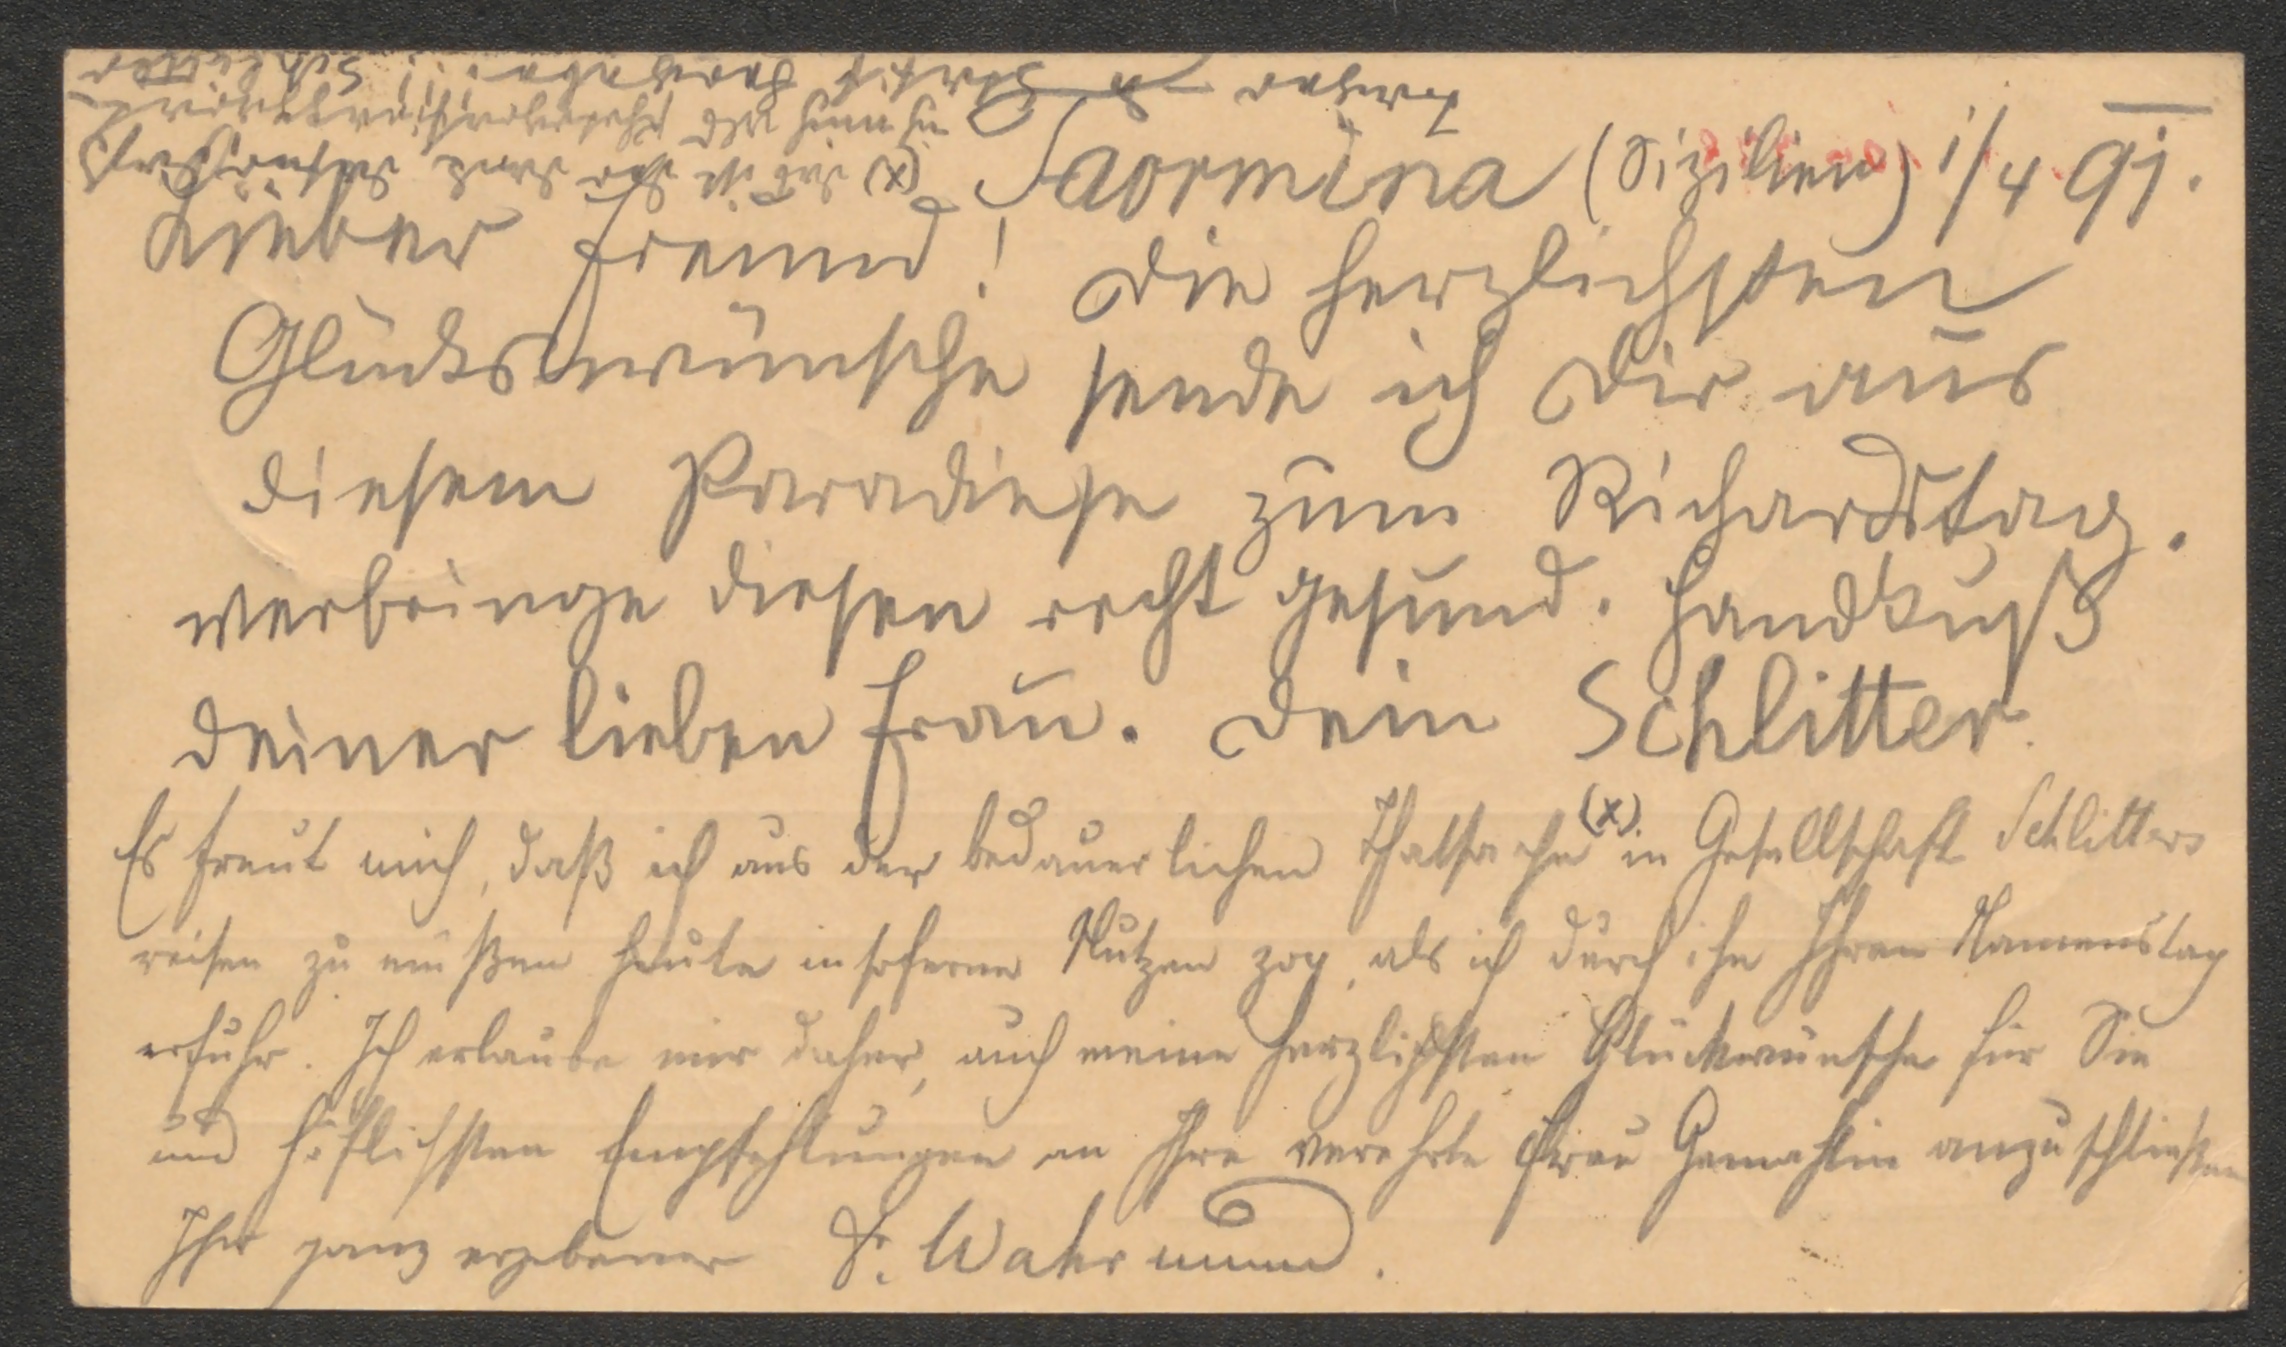 Taormina (Sizilien) 1/4 91.
Lieber Freund! Die herzlichsten
Glückswünsche sende ich Dir aus
diesem Paradiese zum Richardstag.
verbringe diesen recht gesund. Handkuß
deiner lieben Frau. Dein Schlitter
Es freut mich, daß ich aus der bedauerlichen Thatsache (x) in Gesellschaft Schlitters
reisen zu müßen heute insoferne Nutzen zog, als ich durch ihn Ihren Namenstag
erfuhr. Ich erlaube mir daher, auch meine herzlichsten Glückwünsche für Sie
und höflichsten Empfehlungen an Ihre verehrte Frau Gemahlin anzuschließen
Ihr ganz ergebener Dr. Wahrmund.
(x) das ist der Dank dafür, daß
ich mich als
Schlitter